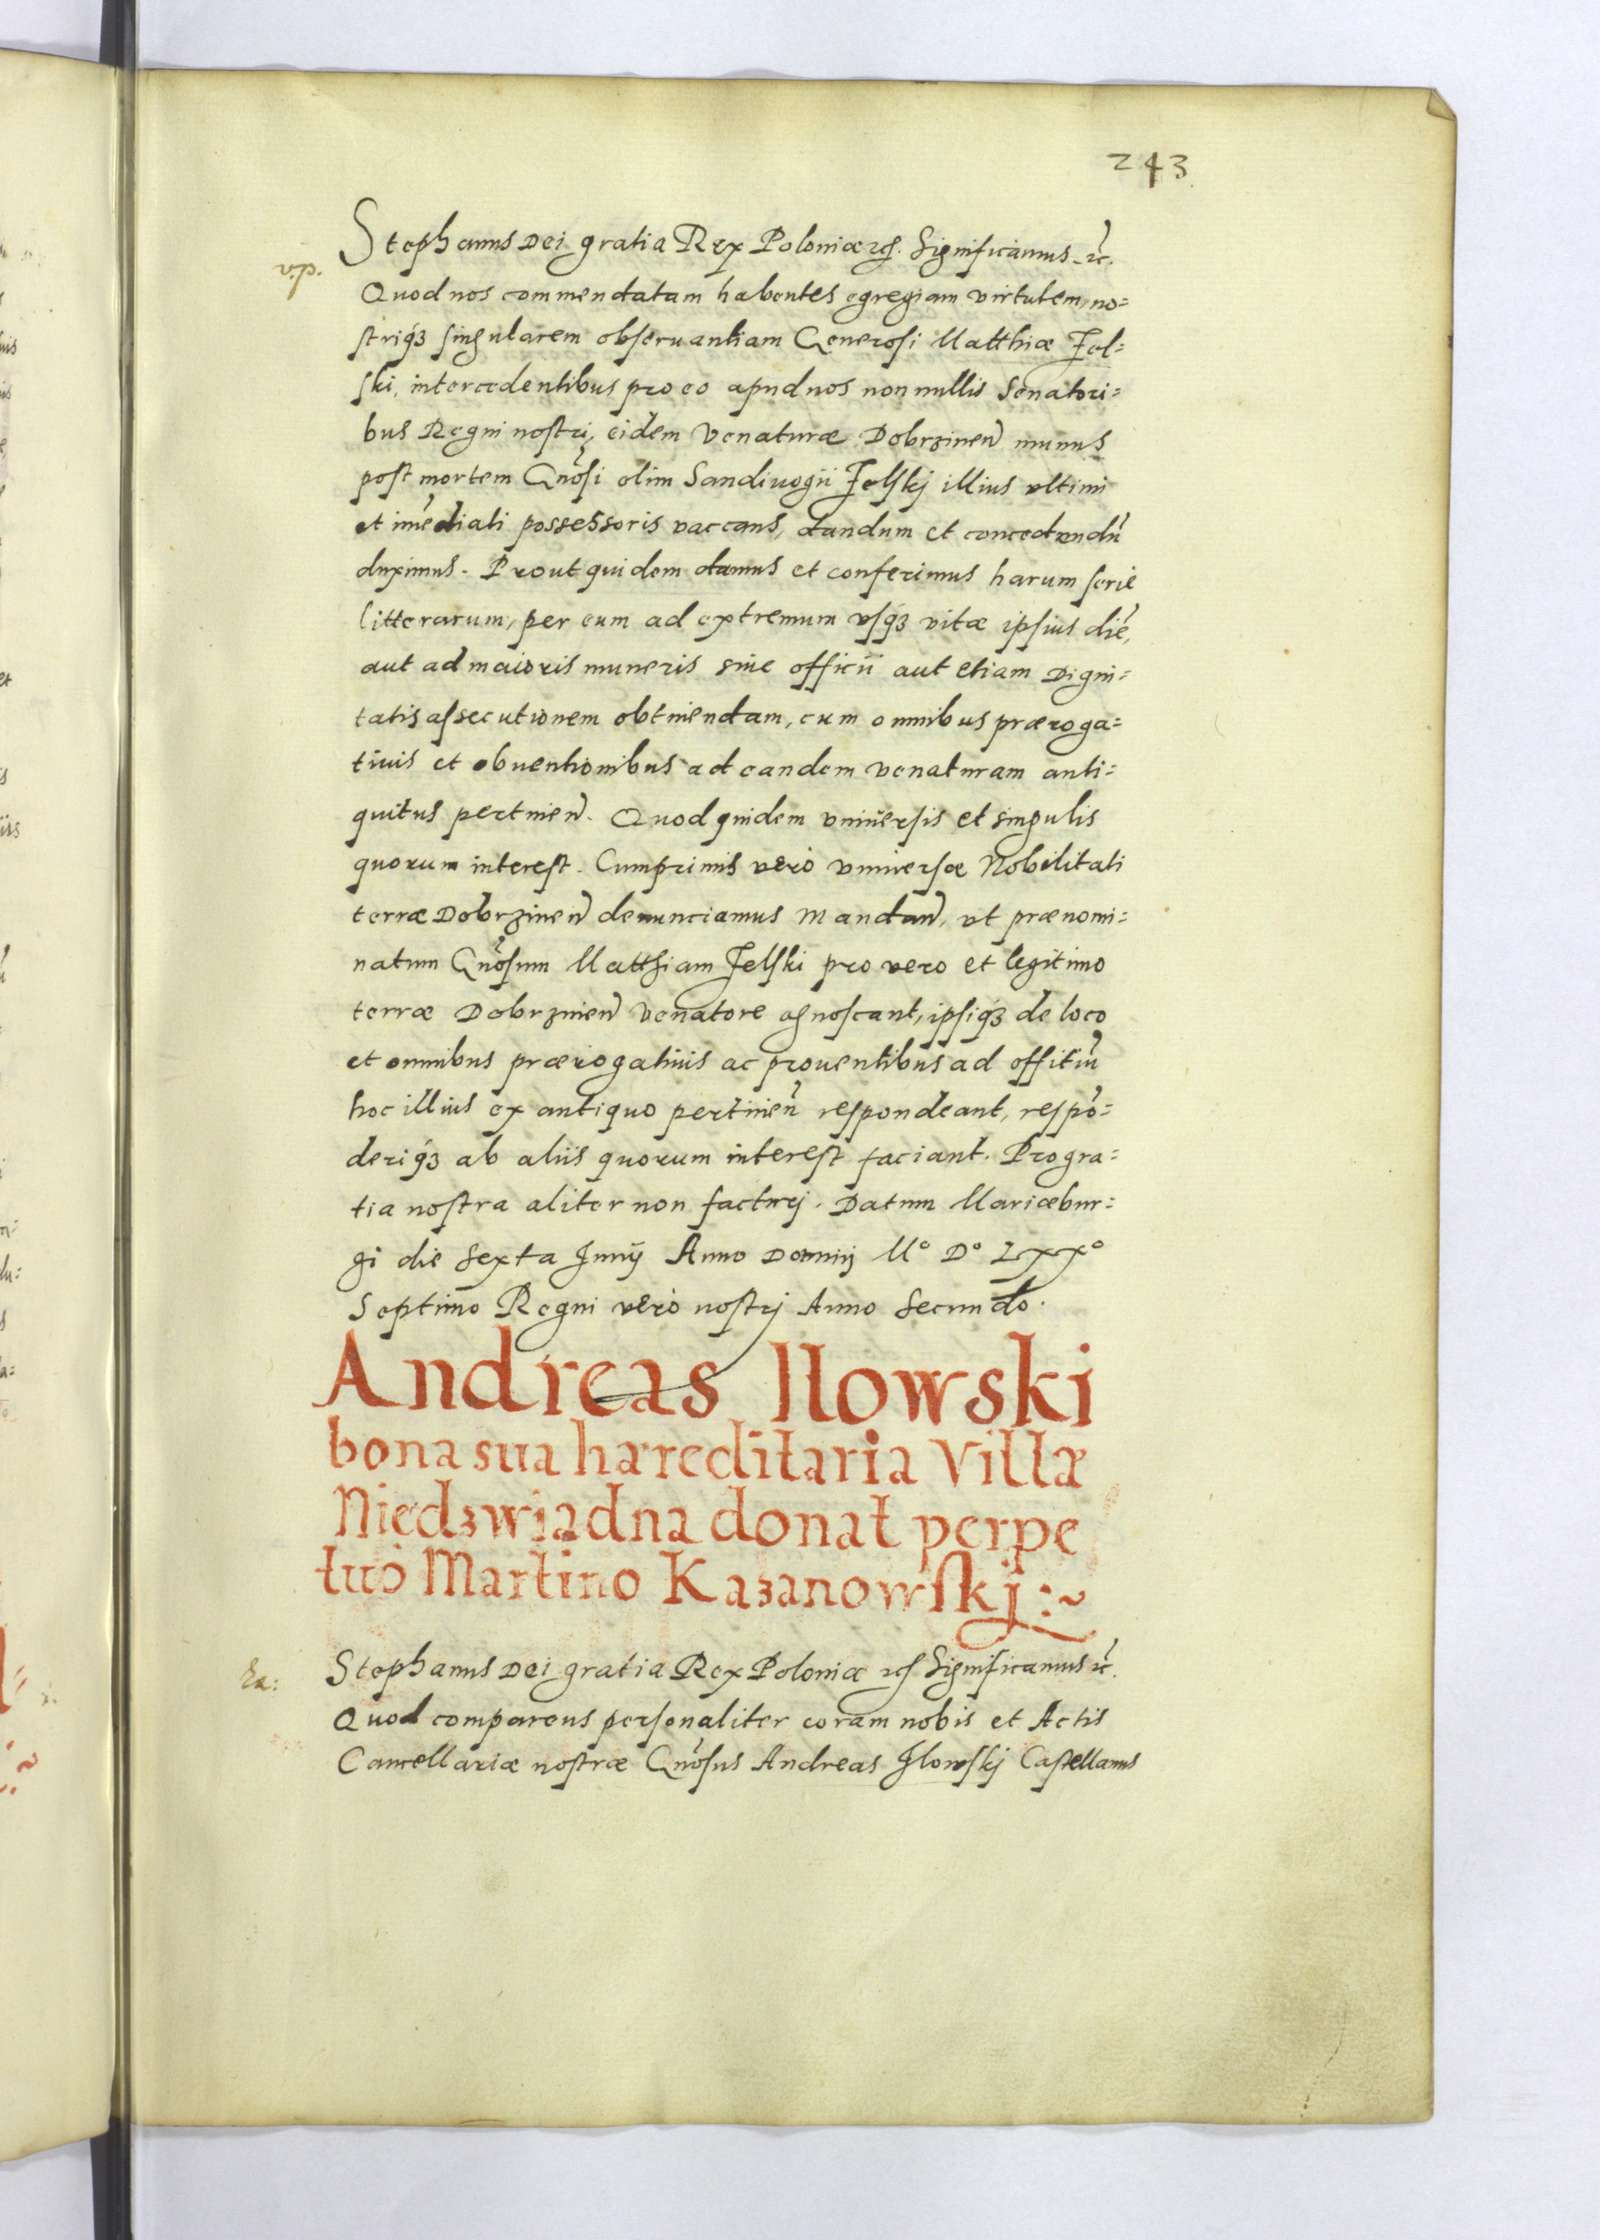 243
Stephanus Dei gratia Rex Poloniæ etc. Significamus etc.
v.p.
Quod nos commendatam habentes egregiam virtutem, no=
striq́ꝫ singularem obseruantiam Generosi Matthiæ Jel=
ski, intercedentibus pro eo apud nos non nullis Senatori=
bus Regni nostri, eidem Venaturæ Dobrzineñ munus
post mortem Gnõsi olim Sandiuogii Jelskj illius vltimi
et imẽdiati possessoris vaccans, dandum et concedendũ
duximus. Prout quidem damus et conferimus harum serie
litterarum, per eum ad extremum vsq́ꝫ vitæ ipsius diẽ,
aut ad maioris muneris siue officii aut etiam Digni=
tatis assecutionem obtinendam, cum omnibus præroga=
tiuis et obuentionibus ad eandem venaturam anti=
quitus pertineñ. Quod quidem vniuersis et singulis
quorum interest. Cumprimis verò vniuersæ Nobilitati
terræ Dobrzineñ denunciamus Mandañ, vt prænomi=
natum Gnõsum Matthiam Jelski pro vero et legitimo
terræ Dobrzineñ Venatore agnoscant, ipsiq́ꝫ de loco
et omnibus prærogatiuis ac prouentibus ad offitiũ
hoc illius ex antiquo pertineñ respondeant, respõ=
deriq́ꝫ ab aliis quorum interest faciant. Pro gra=
tia nostra aliter non facturj. Datum Mariæbur=
gi die Sexta Junij Anno Dominj Mº Dº Lxxº
Septimo Regni verò nostrj Anno Secundo.
Andreas Ilowski
bona sua hæreditaria Villæ
Niedzwiadna donat perpe
tuò Martino Kazanowskj :~
Ra:
Stephanus Dei gratia Rex Poloniæ etc Significamus etc.
Quod comparens personaliter coram nobis et Actis
Cancellariæ nostræ Gnõsus Andreas Jlowskj Castellanus